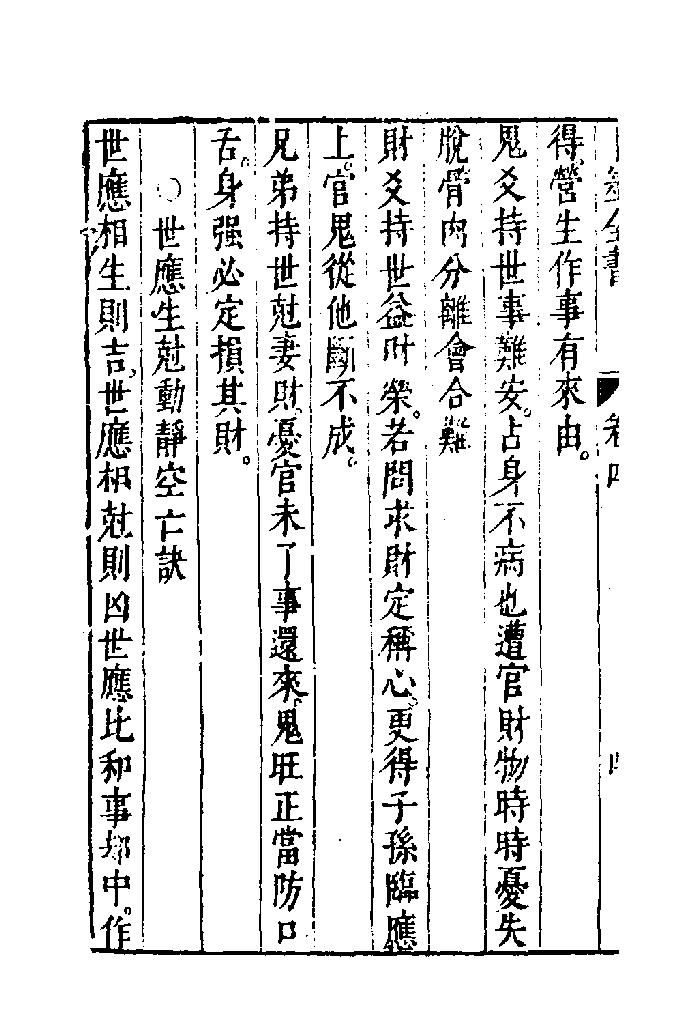 卷四
得營生作事有來由。
鬼爻持世事難安。占身不病也遭官財物時時憂失
脫骨肉分離會合難
財爻持世益財榮。若問求財定稱心。更得子孫臨應
上。官鬼從他斷不成。
兄弟持世尅妻財。憂官未了事還來。鬼旺正當防口
舌。身强必定損其財。
○世應生尅動靜空亡訣
世應相生則吉。世應相尅則凶世應比和事却中。作